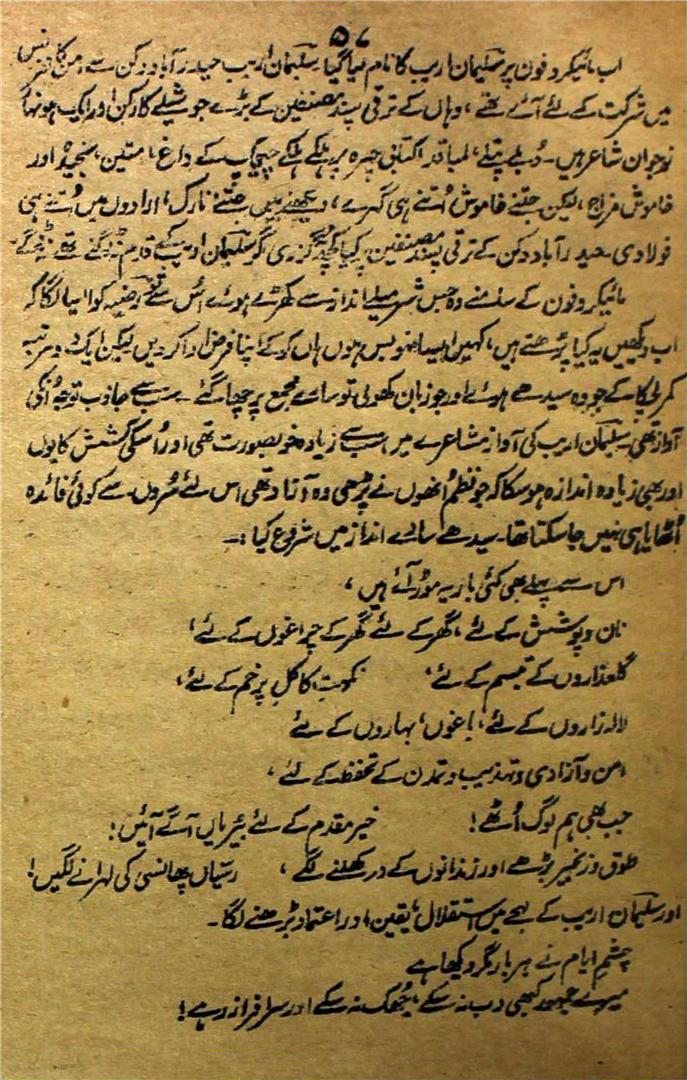 ۵۷
اب مائیکروفون پر سلیمان اریب کا نام لیا گیا۔ سلیمان اریب حیدر آباد دکن سے امن کانفرنس
میں شرکت کے لئے آئے تھے، وہاں کے ترقی پسند مصنفین کے بڑے جوشیلے کارکن اور ایک ہونہار
نوجوان شاعر ہیں۔ دُبلے پتلے، لمبا قد، کتابی چہرہ پر ہلکے ہلکے چیچک کے داغ، متین، سنجیدہ اور
خاموش مزاج، لیکن جتنے خاموش اُتنے ہی گہرے، دیکھنے میں جتنے نازک، ارادوں میں اُتنے ہی
فولادی۔ حیدر آباد دکن کے ترقی پسند مصنفین پر کیا کچھ نہ گزری مگر سلیمان اریب کے قدم نہ ڈگنے تھے نہ ڈگے۔
مائیکروفون کے سامنے وہ جس شرمیلے انداز سے کھڑے ہوئے اُس سے رضیہ کو ایسا لگا کہ
اب دیکھیں یہ کیا پڑھتے ہیں، کہیں ایسا نہ ہو بس ہوں ہاں کر کے اپنا فرض ادا کر دیں لیکن ایک دو مرتبہ
کمر لچکا کے جو وہ سیدھے ہوئے اور جو زبان کھولی تو سارے مجمع پر چھا گئے۔ سب سے جاذب توجہ اُنکی
آواز تھی۔ سلیمان اریب کی آواز مشاعرے میں سب سے زیادہ خوبصورت تھی اور اُسکی کشش کا یوں
اور بھی زیادہ اندازہ ہو سکا کہ جو نظم اُنھوں نے پڑھی وہ آزاد تھی اس لئے سُروں سے کوئی فائدہ
اُٹھایا ہی نہیں جا سکتا تھا۔ سیدھے سادے انداز میں شروع کیا :۔
اس سے پہلے بھی کئی بار یہ موڑ آئے ہیں،
نان و پوشش کے لئے، گھر کے لئے گھر کے چراغوں کے لئے،
گلعذاروں کے تبسم کے لئے، نکہتِ کاکلِ پر خم کے لئے،
لالہ زاروں کے لئے، باغوں، بہاروں کے لئے
امن و آزادی و تہذیب و تمدن کے تحفظ کے لئے،
جب بھی ہم لوگ اُٹھے! خیر مقدم کے لئے بیڑیاں آگے آئیں!
طوق و زنجیر بڑھے اور زندانوں کے در کھلنے لگے، رسّیاں پھانسی کی لہرانے لگیں!
اور سلیمان اریب کے لہجے میں استقلال، یقین، اور اعتماد بڑھنے لگا۔
چشمِ ایام نے ہر بار مگر دیکھا ہے
میرے جمہور کبھی دب نہ سکے، جُھک نہ سکے اور سرافراز رہے!